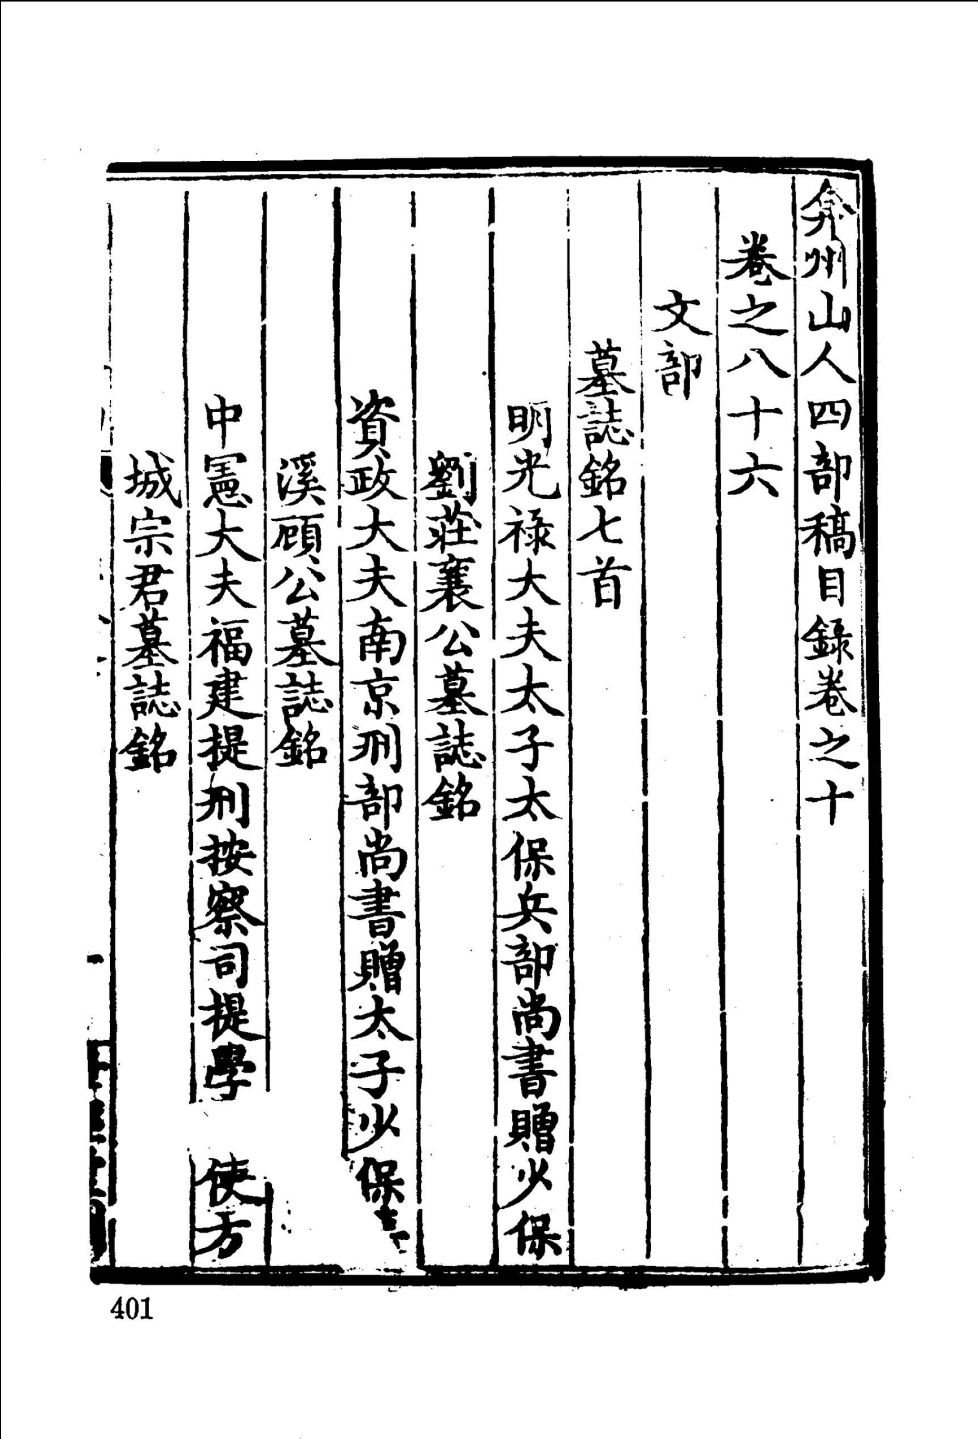 弇州山人四部稿目錄卷之十
卷之八十六
文部
墓誌銘七首
明光祿大夫太子太保兵部尚書贈少保
劉莊襄公墓誌銘
資政大夫南京刑部尚書贈太子少保
溪顧公墓誌銘
中憲大夫福建提刑按察司提學 使方
城宗君墓誌銘
401